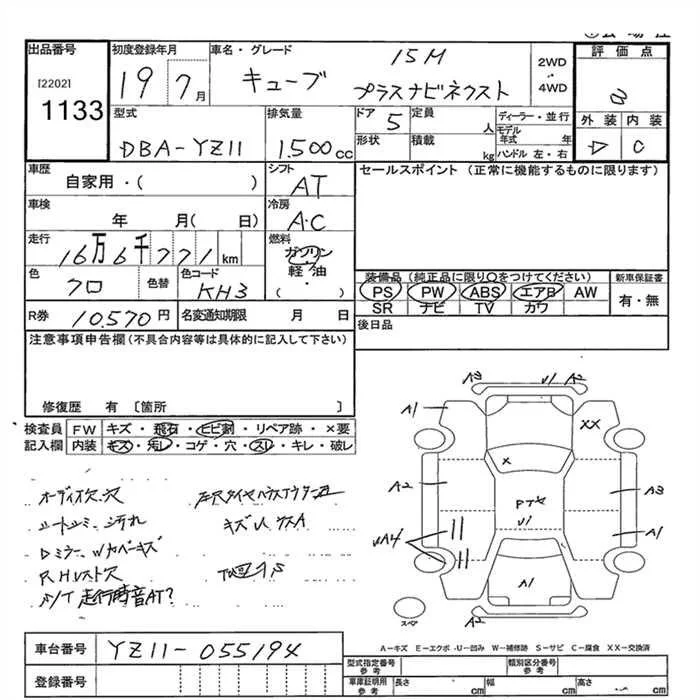 出品番号 初度登録年月 車名・グレード 15M 2WD 評価点
[2202] 1133
19 7月 キューブ プラスナビネクスト 4WD
型式 排気量 ドア 定員 人 ディーラー・並行 外装 内装
DBA-YZ11 1.500cc 5 モデル年式 年
形状 積載 kg ハンドル 左・右 D C
車歴 シフト セールスポイント (正常に機能するものに限ります)
自家用・( ) AT
車検 冷房
年 月( 日) A・C
走行 燃料
16万6千771km ガソリン
軽・油
色 色替 色コード ( ・ ) 装備品 (純正品に限り○をつけてください) 新車保証書
クロ KH3 PS PW ABS エアB AW 有・無
SR ナビ TV カワ
R券 10,570円 名変通知期限 月 日 後日品
注意事項申告欄(不具合内容等は具体的に記入して下さい)
修復歴 有 〔箇所 〕
検査員 FW キズ・飛石・ヒビ割・リペア跡・×要
記入欄 内装 キズ・汚レ・コゲ・穴・スレ・キレ・破レ
A3 U1 A2
A1 XX
X
A2 A3
U1
UA4 A1
A1
A2
オーディオ欠.穴
シートシミ.汚れ キズU.
DミラーWカバーキズ
走行時音AT?
スペア
A-キズ E-エクボ U-凹み W-補修跡 S-サビ C-腐食 XX-交換済
車台番号 YZ11-055194
型式指定番号 参考 類別区分番号 参考
登録番号 車庫証明用 参考 長さ cm 幅 cm 高さ cm